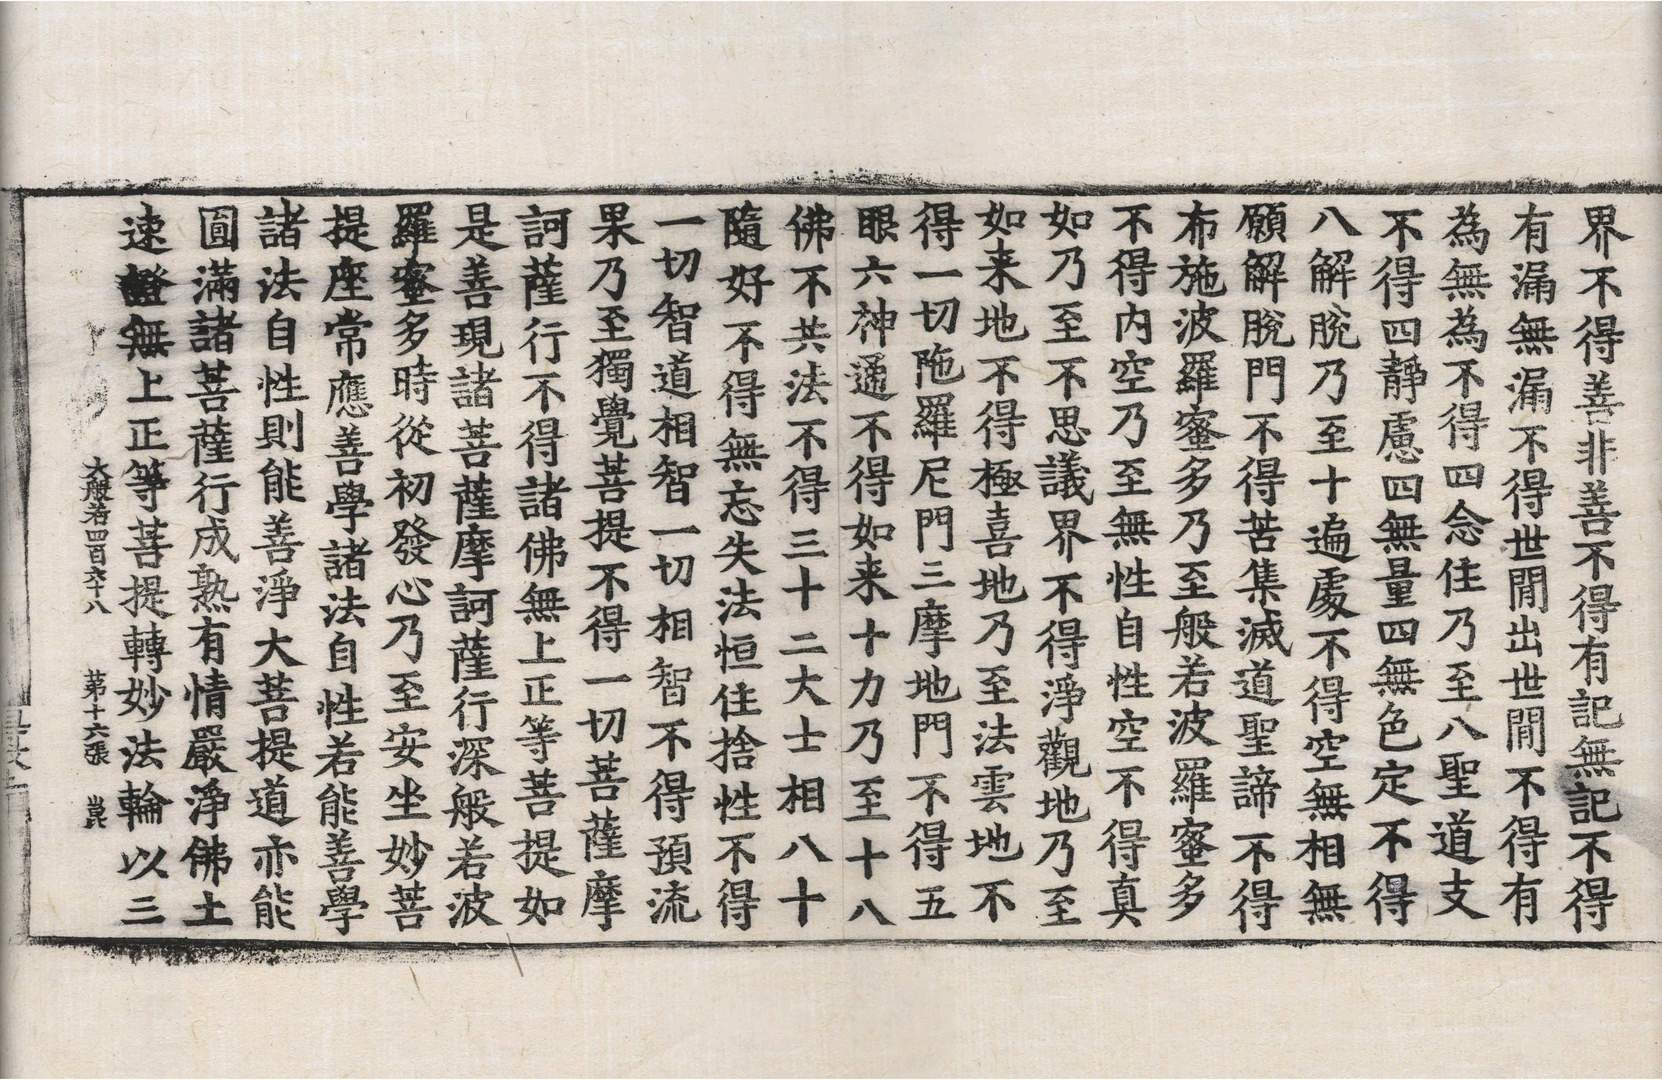 界不得善非善不得有記無記不得
有漏無漏不得世間出世間不得有
為無為不得四念住乃至八聖道支
不得四靜慮四無量四無色定不得
八解脫乃至十遍處不得空無相無
願解脫門不得苦集滅道聖諦不得
布施波羅蜜多乃至般若波羅蜜多
不得內空乃至無性自性空不得真
如乃至不思議界不得淨觀地乃至
如来地不得極喜地乃至法雲地不
得一切陁羅尼門三摩地門不得五
眼六神通不得如来十力乃至十八
佛不共法不得三十二大士相八十
隨好不得無忘失法恒住捨性不得
一切智道相智一切相智不得預流
果乃至獨覺菩提不得一切菩薩摩
訶薩行不得諸佛無上正等菩提如
是善現諸菩薩摩訶薩行深般若波
羅蜜多時從初發心乃至安坐妙菩
提座常應善學諸法自性若能善學
諸法自性則能善淨大菩提道亦能
圓滿諸菩薩行成熟有情嚴淨佛土
速證無上正等菩提轉妙法輪以三
大般若四百六十八 第十六張 崑